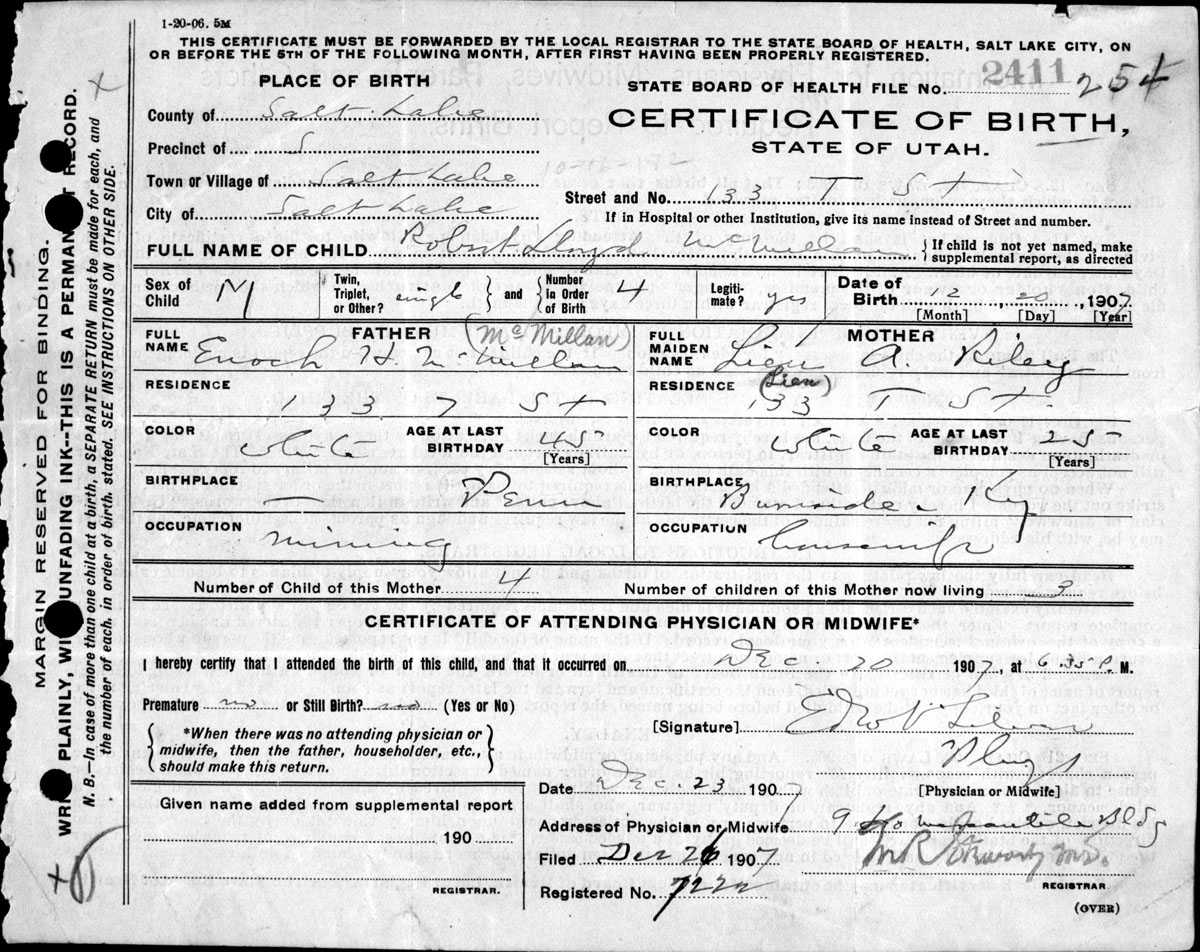 1-20-06. 5M
THIS CERTIFICATE MUST BE FORWARDED BY THE LOCAL REGISTRAR TO THE STATE BOARD OF HEALTH, SALT LAKE CITY, ON
OR BEFORE THE 5TH OF THE FOLLOWING MONTH, AFTER FIRST HAVING BEEN PROPERLY REGISTERED.
PLACE OF BIRTH
STATE BOARD OF HEALTH FILE No. 2411 254
County of Salt Lake
CERTIFICATE OF BIRTH,
Precinct of 5
STATE OF UTAH.
Town or Village of Salt Lake
Street and No. 133 T St
City of Salt Lake
If in Hospital or other Institution, give its name instead of Street and number.
FULL NAME OF CHILD Robert Lloyd McMillan { If child is not yet named, make supplemental report, as directed
Sex of Child M Twin, Triplet, or Other? single and Number in Order of Birth 4 Legiti-mate? yes Date of Birth 12 20 1907
[Month] [Day] [Year]
FULL NAME FATHER (McMillan)
Enoch H McMillan
FULL MAIDEN NAME MOTHER
A. Riley
(Lien)
RESIDENCE 133 T St
RESIDENCE 133 T St.
COLOR White AGE AT LAST BIRTHDAY [Years]
COLOR White AGE AT LAST BIRTHDAY [Years]
BIRTHPLACE Penn
BIRTHPLACE Burnside Ky
OCCUPATION mining
OCCUPATION housewife
Number of Child of this Mother 4 Number of children of this Mother now living 3
CERTIFICATE OF ATTENDING PHYSICIAN OR MIDWIFE*
I hereby certify that I attended the birth of this child, and that it occurred on Dec. 20 1907, at 6.35 P. M.
Premature no or Still Birth? no (Yes or No)
[Signature]
*When there was no attending physician or
midwife, then the father, householder, etc.,
should make this return.
[Physician or Midwife]
Date Dec. 23 1907
Given name added from supplemental report
190
REGISTRAR.
Address of Physician or Midwife Mercantile Bldg
Filed Dec 26 1907 M.D.
REGISTRAR.
Registered No.
(OVER)
MARGIN RESERVED FOR BINDING.
PLAINLY, UNFADING INK--THIS IS A RECORD.
N. B.—In case of more than one child at a birth, a SEPARATE RETURN must be made for each, and
the number of each, in order of birth, stated. SEE INSTRUCTIONS ON OTHER SIDE.